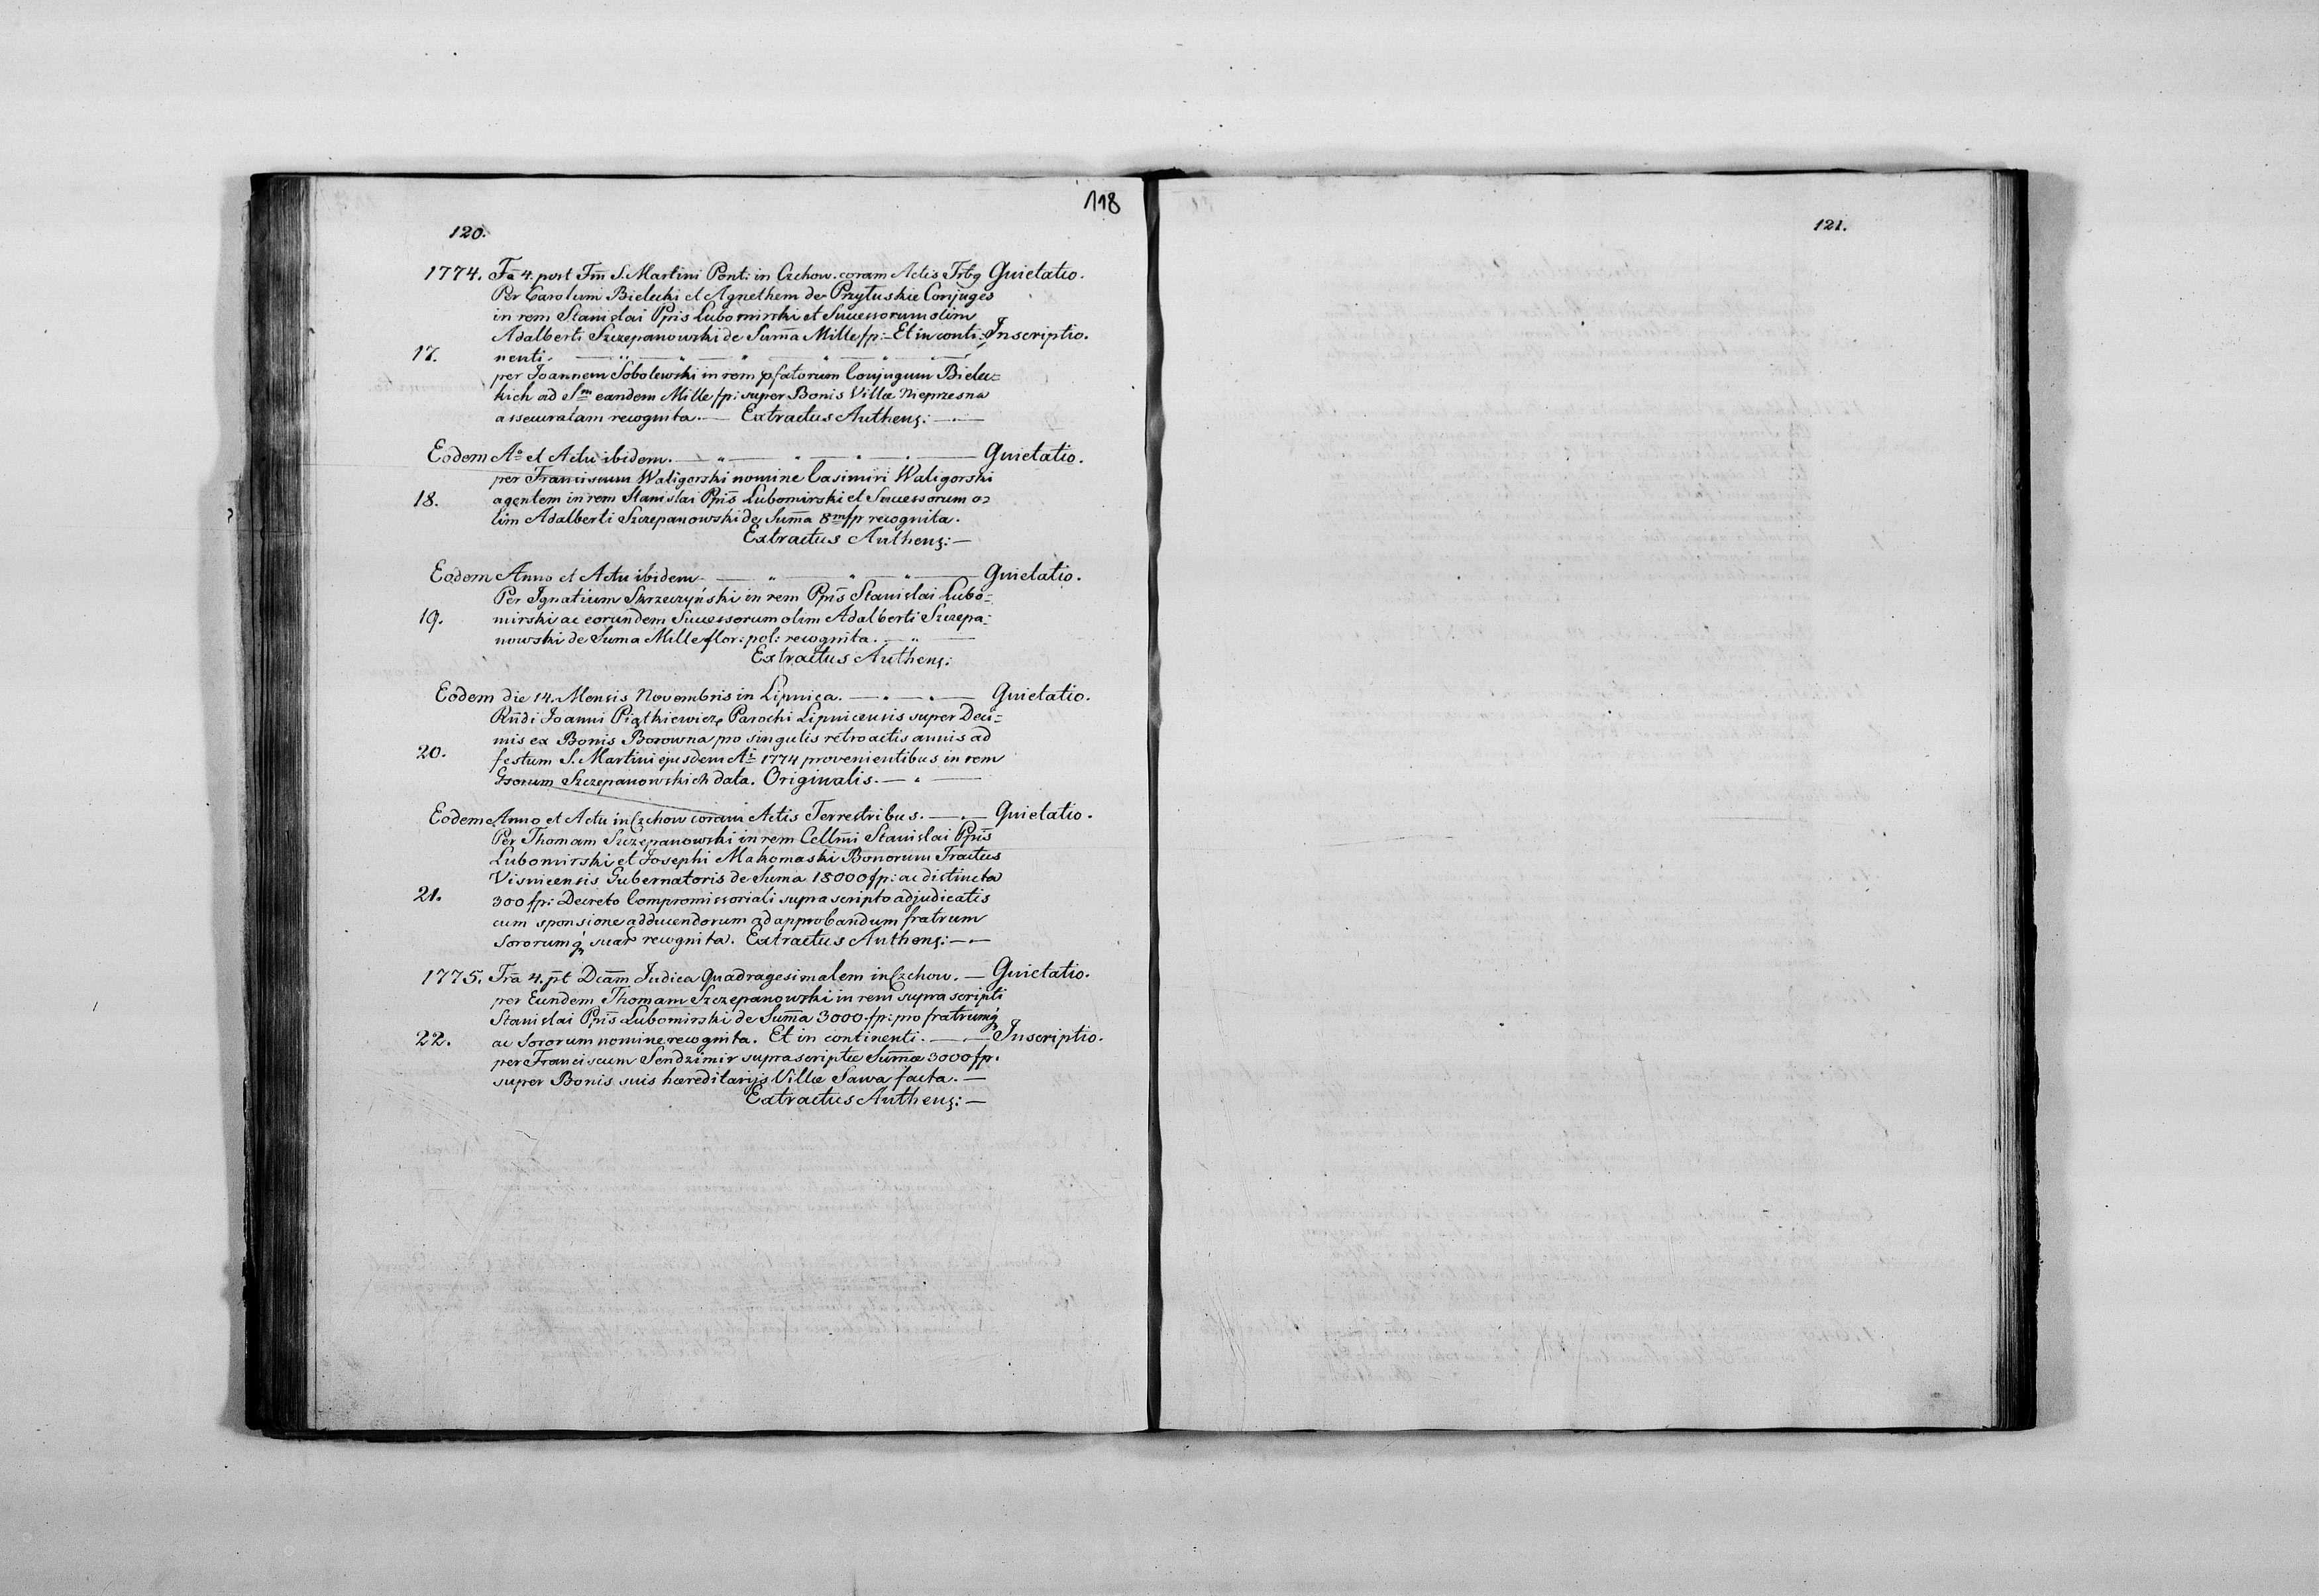 118
120.
1774. Fa 4. post Fm̃ S. Martini Pont: in Czchow. coram Actis Trbg Quietatio.
Per Carolum Bielecki et Agnethem de Przyłuskie Conjuges
in rem Stanislai Ppis Lubomirski et Successorum olim
Adalberti Szczepanowski de Sum̃a Mille fp:- Et in conti: Inscriptio.
17. nenti.
per Joannem Sobolewski in rem pfatorum Conjugum Bielec=
kich ad Sm̲ eandem Mille fp: super Bonis Villæ Nieprzesna
assecuratam recognita. — Extractus Authens: —
Eodem A° et Actu ibidem. — Quietatio.
per Franciscum Waligorski nomine Casimiri Waligorski
18. agentem in rem Stanislai Ppis̃ Lubomirski et Successorum o=
lim Adalberti Szczepanowski de Sum̃a 8m̲ fp recognita.
Extractus Authens: —
Eodem Anno et Actu ibidem — Quietatio.
Per Ignatium Skrzeczyński in rem Ppis̃ Stanislai Lubo=
19. mirski ac eorundem Successorum olim Adalberti Szczepa=
nowski de Suma Mille flor: pol: recognita. —
Extractus Authens:
Eodem die 14. Mensis Novembris in Lipnica. — Quietatio.
Rñdi Joanni Piątkiewicz Parochi Lipnicensis super Deci=
mis ex Bonis Borowna pro singulis retroactis annis ad
20. festum S. Martini ejusdem Ai̲ 1774 provenientibus in rem
Gsorum Szczepanowskich data. Originalis. —
Eodem Anno et Actu in Czchow coram Actis Terrestribus. — Quietatio.
Per Thomam Szczepanowski in rem Cellm̃i Stanislai Ppis̃
Lubomirski et Josephi Makomaski Bonorum Tractus
Visnicensis Gubernatoris de Suma 18000 fp: ac distincta
21. 300 fp: Decreto Compromissoriali supra scripto adjudicatis
cum sponsione adducendorum ad approbandum fratrum
Sororumq́ suar recognita. Extractus Authens: —
1775. Fr̃a 4. pt̃ Dcãm Judica Quadragesimalem in Czchow. — Quietatio.
per Eundem Thomam Szczepanowski in rem supra scripti
Stanislai Ppis̃ Lubomirski de Sum̃a 3000. fp: pro fratrumq́
22. ac Sororum nomine recognita. Et in continenti. — Inscriptio.
per Franciscum Sendzimir suprascriptæ Sum̃æ 3000 fp.
super Bonis suis hæreditarijs Villæ Sawa facta. —
Extractus Authens: —
121.